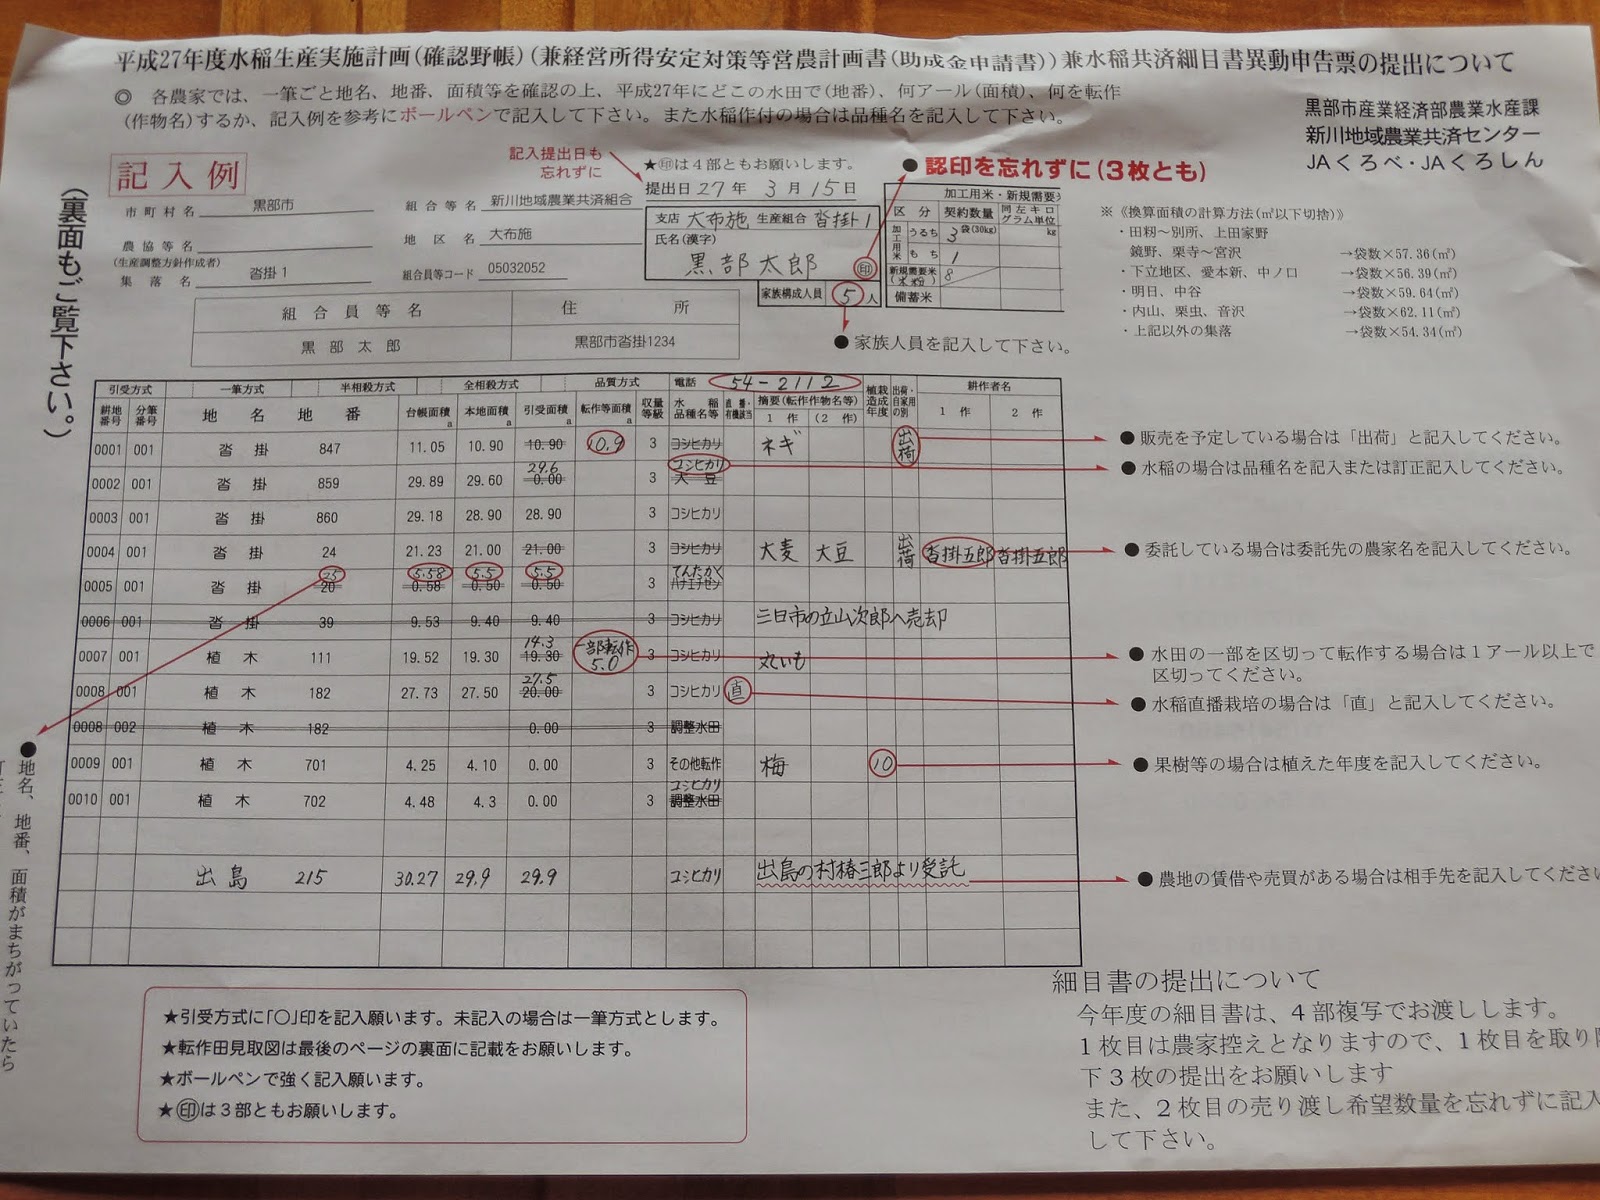 平成27年度水稲生産実施計画(確認野帳)(兼経営所得安定対策等営農計画書(助成金申請書))兼水稲共済細目書異動申告票の提出について
◎ 各農家では、一筆ごと地名、地番、面積等を確認の上、平成27年にどこの水田で(地番)、何アール(面積)、何を転作
(作物名)するか、記入例を参考にボールペンで記入して下さい。また水稲作付の場合は品種名を記入して下さい。
黒部市産業経済部農業水産課
新川地域農業共済センター
JAくろべ・JAくろしん
(裏面もご覧下さい。)
記入例
記入提出日も
忘れずに
★㊞は4部ともお願いします。
●認印を忘れずに(3枚とも)
提出日 27年 3月15日
市町村名 黒部市
組合等名 新川地域農業共済組合
農協等名
(生産調整方針作成者)
地区名 大布施
集落名 沓掛1
組合員等コード 05032052
支店 大布施 生産組合 沓掛1
氏名(漢字)
黒部太郎 ㊞
家族構成人員 5人
●家族人員を記入して下さい。
加工用米・新規需要
区分 契約数量 同左キログラム単位
加工用米 うるち 3袋(30kg) kg
もち 1
新規需要米(米粉) 8
備蓄米
※《換算面積の計算方法(㎡以下切捨)》
・田籾~別所、上田家野
鏡野、栗寺~宮沢 →袋数×57.36(㎡)
・下立地区、愛本新、中ノ口 →袋数×56.39(㎡)
・明日、中谷 →袋数×59.64(㎡)
・内山、栗虫、音沢 →袋数×62.11(㎡)
・上記以外の集落 →袋数×54.34(㎡)
組合員等名 住所
黒部太郎 黒部市沓掛1234
引受方式 一筆方式 半相殺方式 全相殺方式 品質方式 電話 54-2112 植栽造成年度 出荷・自家用の別 耕作者名
耕地番号 分筆番号 地名 地番 台帳面積a 本地面積a 引受面積a 転作等面積a 収量等級 水稲品種名等 直播・有機該当 摘要(転作作物名等) 1作 (2作) 1作 2作
0001 001 沓掛 847 11.05 10.90 10.90 10.9 3 コシヒカリ ネギ 出荷
0002 001 沓掛 859 29.89 29.60 29.6 0.00 3 コシヒカリ 大豆
0003 001 沓掛 860 29.18 28.90 28.90 3 コシヒカリ
0004 001 沓掛 24 21.23 21.00 21.00 3 コシヒカリ 大麦 大豆 出荷 沓掛五郎 沓掛五郎
25 5.58 5.5 5.5 てんたかく
0005 001 沓掛 20 0.58 0.50 0.50 3 ハナエチゼン
0006 001 沓掛 39 9.53 9.40 9.40 3 コシヒカリ 三日市の立山次郎へ売却
0007 001 植木 111 19.52 19.30 14.3 19.30 一部転作 5.0 3 コシヒカリ 丸いも
0008 001 植木 182 27.73 27.50 27.5 20.00 3 コシヒカリ 直
0008 002 植木 182 0.00 3 調整水田
0009 001 植木 701 4.25 4.10 0.00 3 その他転作 梅 10
0010 001 植木 702 4.48 4.3 0.00 3 コシヒカリ 調整水田
出島 215 30.27 29.9 29.9 コシヒカリ 出島の村椿三郎より受託
●販売を予定している場合は「出荷」と記入してください。
●水稲の場合は品種名を記入または訂正記入してください。
●委託している場合は委託先の農家名を記入してください。
●水田の一部を区切って転作する場合は1アール以上で
区切ってください。
●水稲直播栽培の場合は「直」と記入してください。
●果樹等の場合は植えた年度を記入してください。
●農地の賃借や売買がある場合は相手先を記入してくださ
●地名、地番、面積がまちがっていたら
★引受方式に「〇」印を記入願います。未記入の場合は一筆方式とします。
★転作田見取図は最後のページの裏面に記載をお願いします。
★ボールペンで強く記入願います。
★㊞は3部ともお願いします。
細目書の提出について
今年度の細目書は、4部複写でお渡しします。
1枚目は農家控えとなりますので、1枚目を取り
下3枚の提出をお願いします
また、2枚目の売り渡し希望数量を忘れずに記入
して下さい。